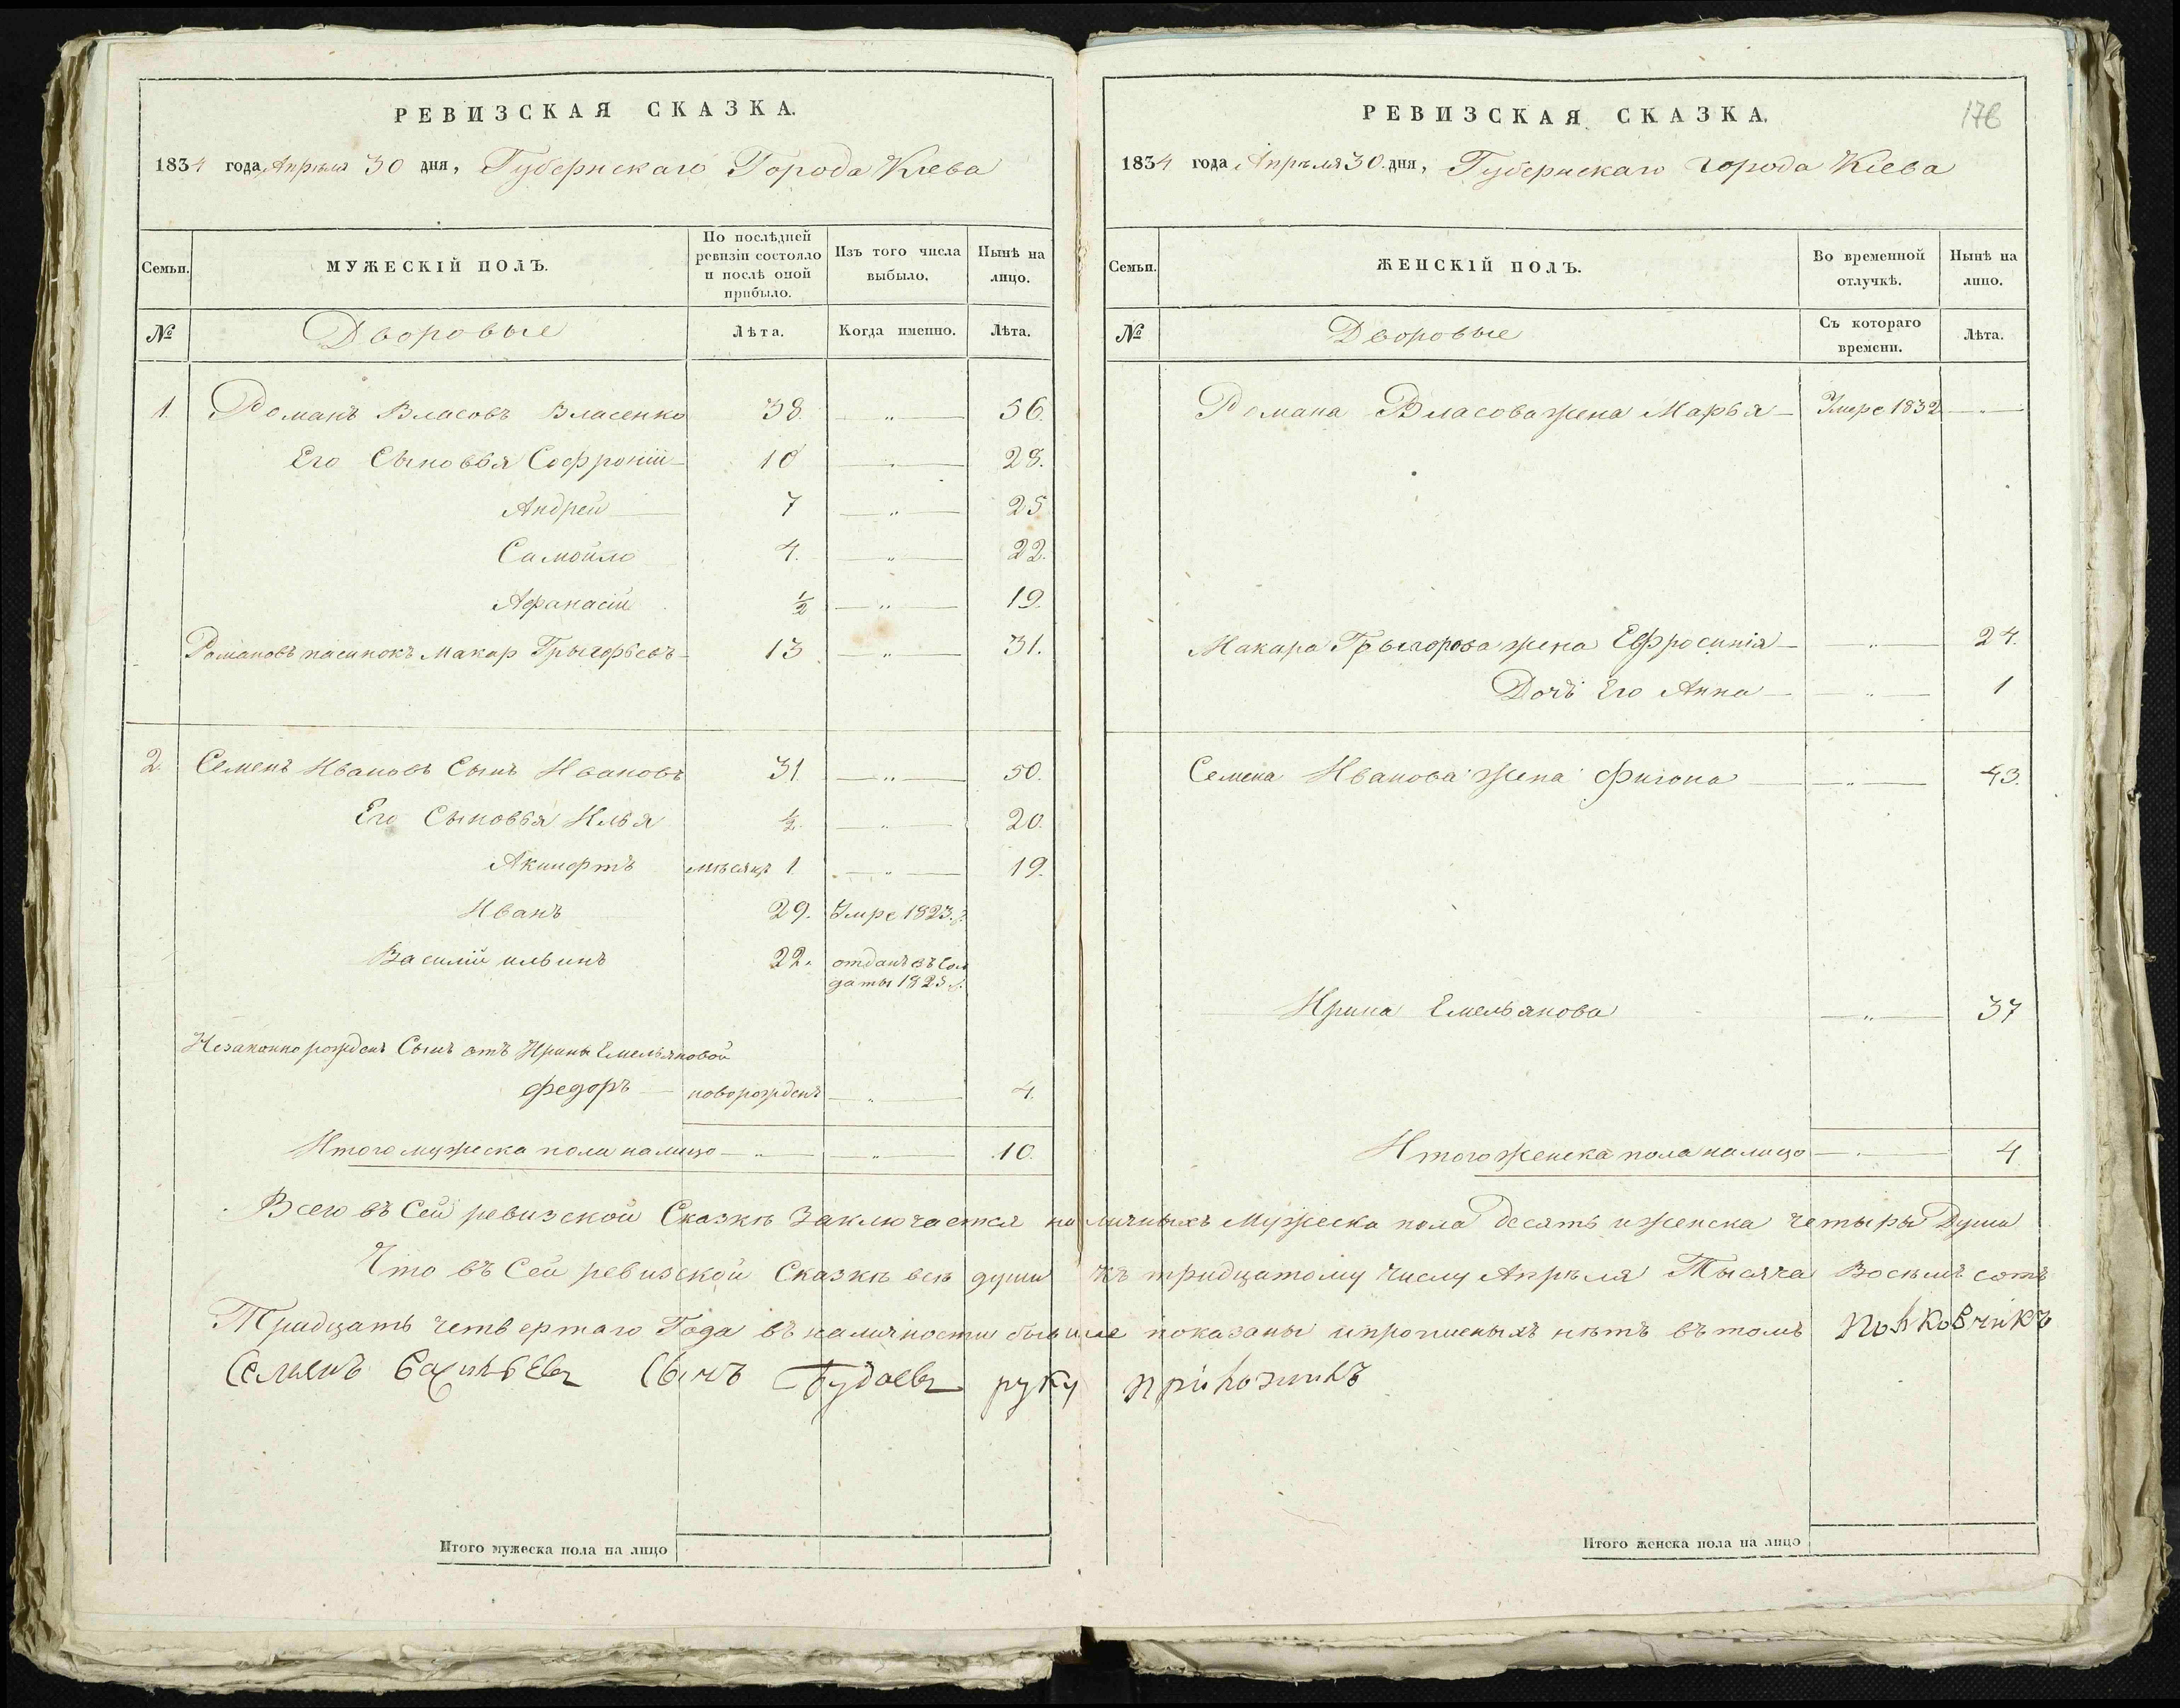 РЕВИЗСКАЯ СКАЗКА.
1834 года Апрѣля 30 дня, Губернскаго Города Кіева
Семьи.
МУЖЕСКІЙ ПОЛЪ.
По послѣдней ревизіи состояло и послѣ оной прибыло.
Изъ того числа выбыло.
Нынѣ на лицо.
№
Дворовые
Лѣта.
Когда именно.
Лѣта.
1. Романъ Власовъ Власенко 38. — „ — 56.
Его Сыновья Софроній 10 — „ — 28.
Андрей 7 — „ — 25
Самойло 4. — „ — 22.
Афанасій ½ — „ — 19.
Романовъ пасинокъ Макар Грыгорьевъ 13 — „ — 31.
2. Семенъ Ивановъ Сынъ Ивановъ 31. — „ — 50.
Его Сыновья Илья ½. — „ — 20.
Акинфтъ мѣсяцъ 1. — „ — 19.
Иванъ 29. Умре 1823.г.
Василій ильинъ 22. отданъ въ Сол
даты 1825.г.
Незаконно рожденъ Сынъ отъ Ирины Емельяновой
Федоръ — новорожденъ — „ — 4.
Итого мужеска пола налицо — „ — — „ — 10.
РЕВИЗСКАЯ СКАЗКА.
176
1834 года Апрѣля 30. дня, Губернскаго города Кіева
Семьи.
ЖЕНСКІЙ ПОЛЪ.
Во временной отлучкѣ.
Нынѣ на лицо.
№
Дворовые
Съ котораго времени.
Лѣта.
Романа Власова жена Марья — Умре 1832 — „ —
Макара Грыгорова жена Ефросинія — — „ — 24.
Дочъ Его Анна — — „ — 1
Семена Иванова жена — „ — 43.
Ирина Емельянова — „ — 37
Итого женска пола налицо — „ — 4
Всего въ Сей ревизской Сказкѣ Заключается наличныхъ Мужеска пола Десять и женска четыры Души
Что въ Сей ревизской Сказкѣ всѣ души къ тридцатому Числу Апрѣля Тысяча Восемь сотъ
Тридцать четвертаго Года въ наличности бывшие показаны и прописныхъ нѣтъ въ томъ Полковникъ
Семенъ Васильевъ Сынъ руку приложилъ
Итого мужеска пола на лицо
Итого женска пола на лицо